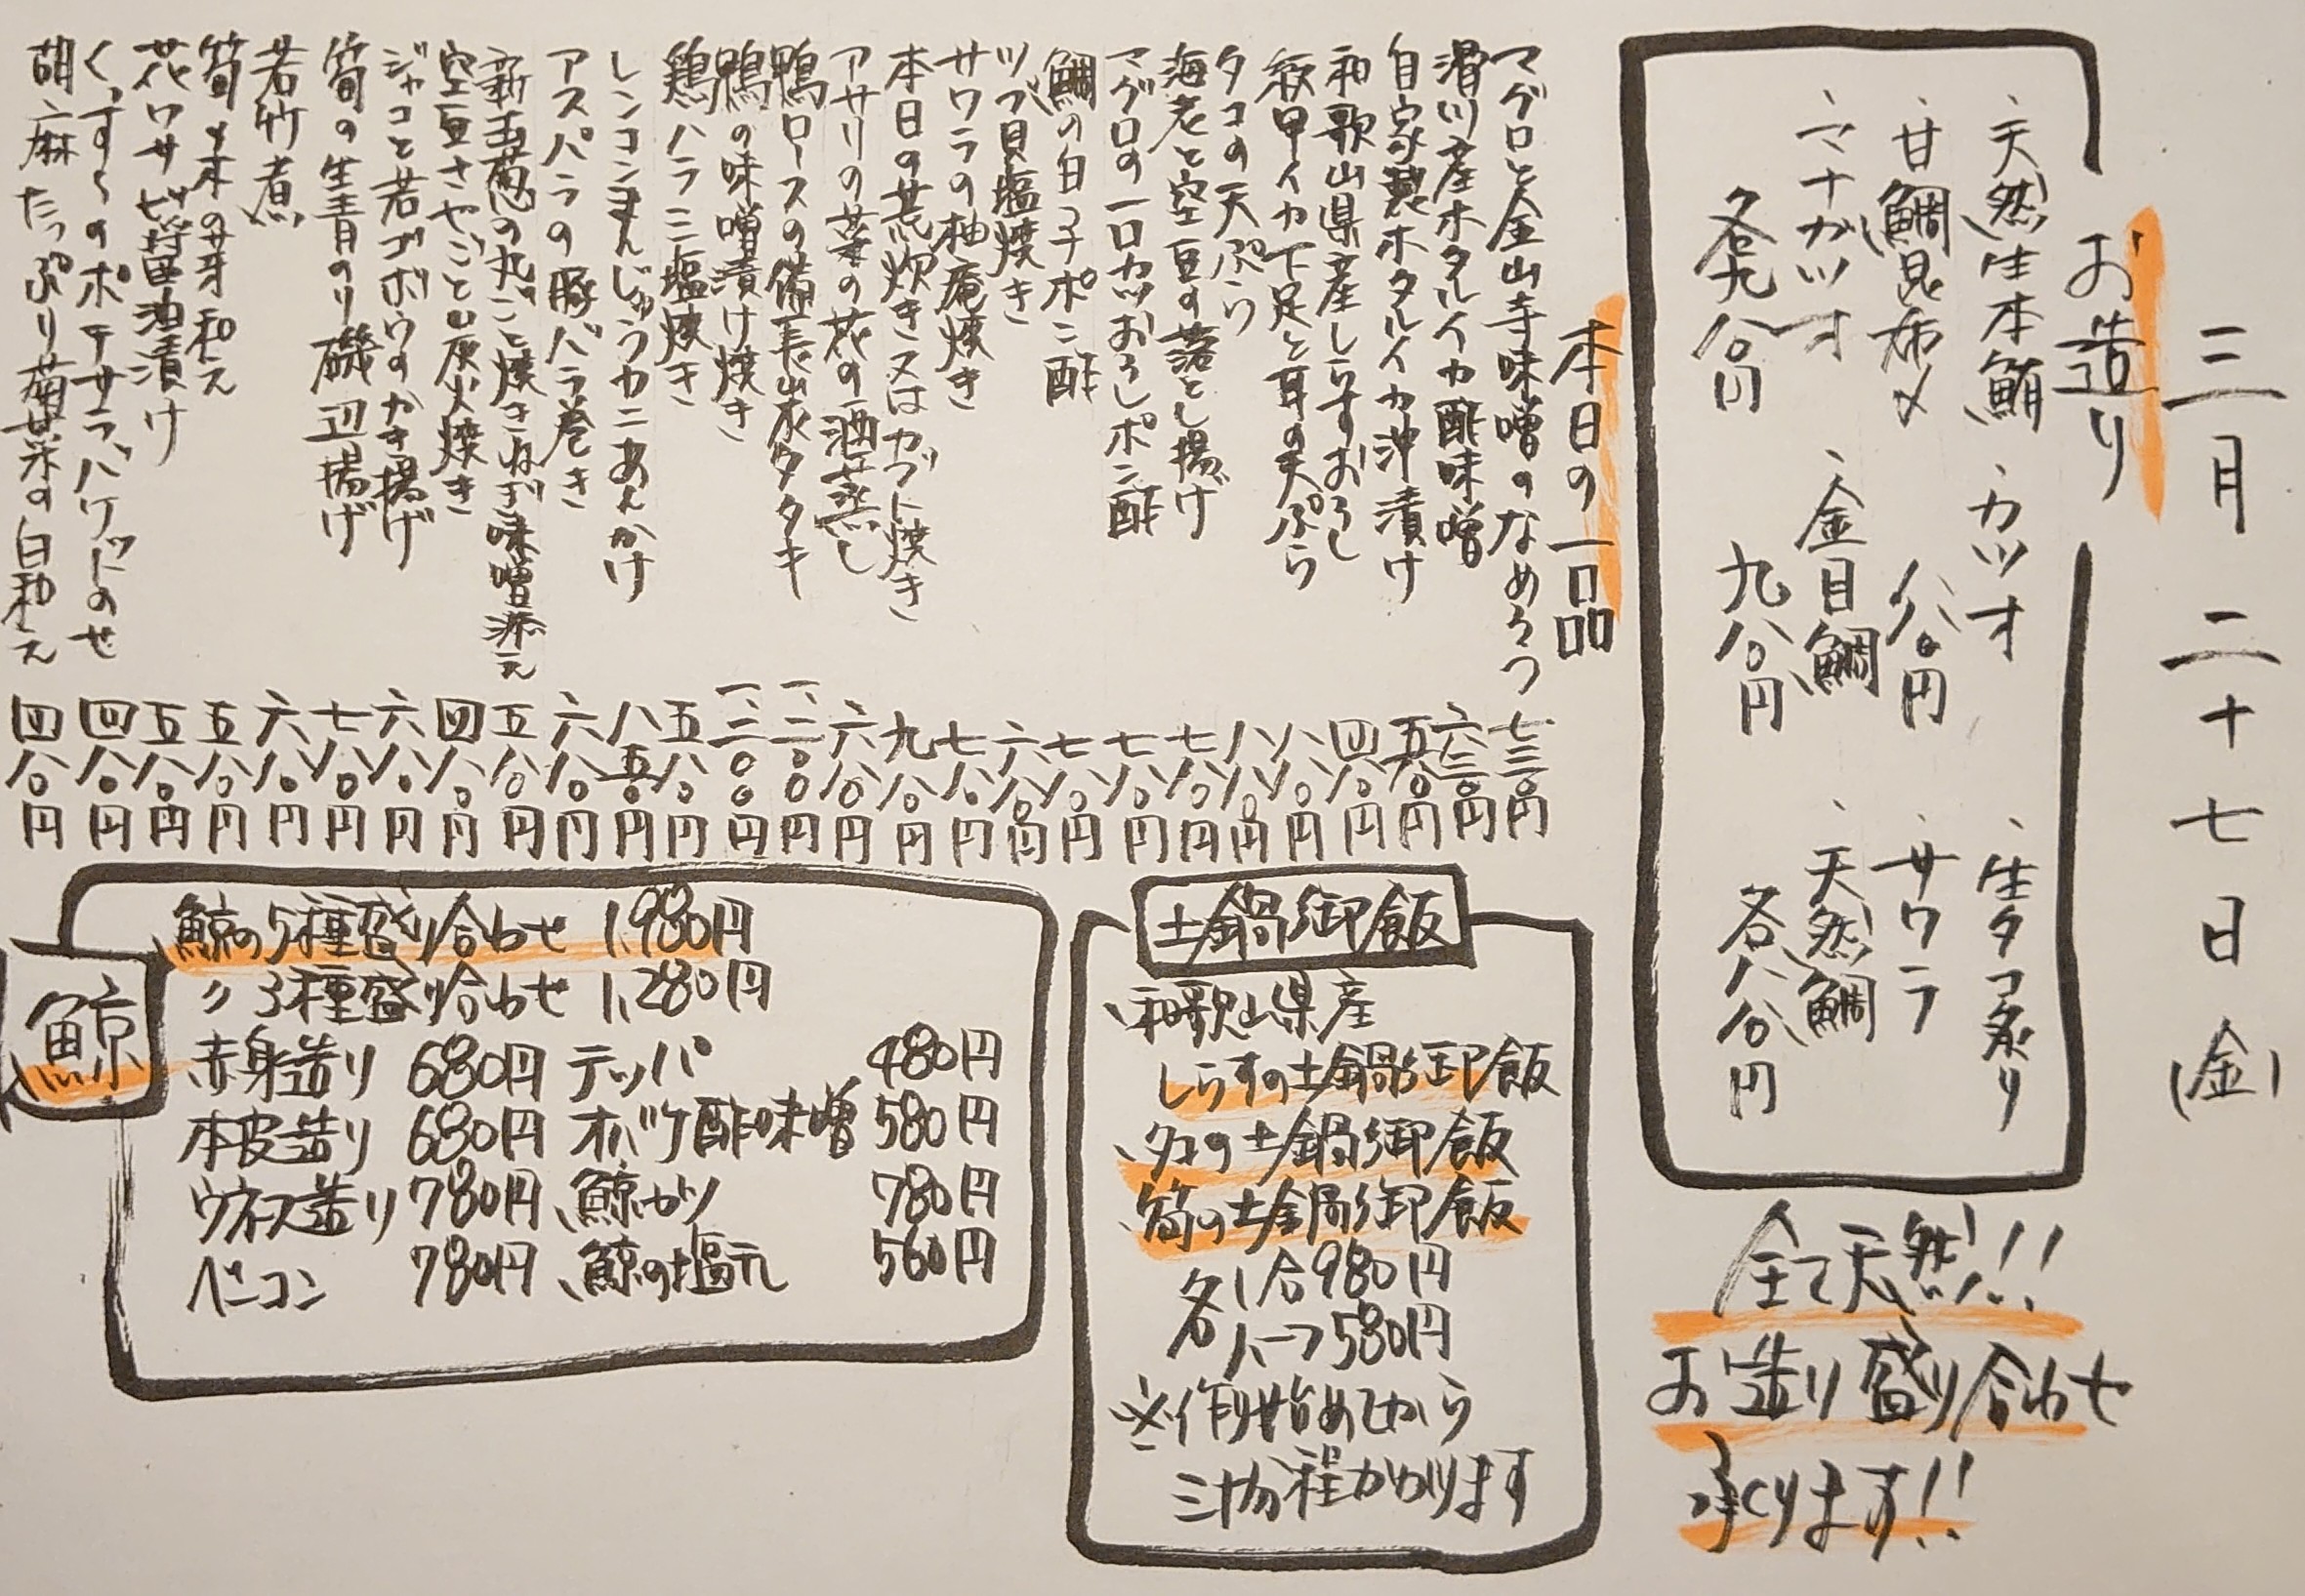 三月二十七日(金)
お造り
、天然生本鮪 、カツオ 、生タコ炙り
、甘鯛昆布〆 八八〇円 、サワラ
、マナガツオ 、金目鯛 、天然鯛
各九八〇円 九八〇円 各八八〇円
全て天然!!
お造り盛り合わせ
承ります!!
本日の一品
マグロと金山寺味噌のなめろう 七三〇円
滑川産ホタルイカ酢味噌 六三〇円
自家製ホタルイカ沖漬け 五八〇円
和歌山県産しらすおろし 四八〇円
紋甲イカ下足と耳の天ぷら 八八〇円
タコの天ぷら 八八〇円
海老と空豆の落とし揚げ 七八〇円
マグロの一口カツおろしポン酢 七八〇円
鯛の白子ポン酢 七八〇円
ツブ貝塩焼き 六八〇円
サワラの柚庵焼き 七八〇円
本日の荒炊き又はカブト焼き 九八〇円
アサリの菜の花の酒蒸し 六八〇円
鴨ロースの備長炭タタキ 一、二〇〇円
鴨の味噌漬け焼き 一、二〇〇円
鶏ハラミ塩焼き 五八〇円
レンコンまんじゅうカニあんかけ 八五〇円
アスパラの豚バラ巻き 六八〇円
新玉葱の丸ごと焼きねぎ味噌添え 五八〇円
空豆さやごと炭火焼き 四八〇円
ジャコと若ゴボウのかき揚げ 六八〇円
筍の生青のり磯辺揚げ 七八〇円
若竹煮 六八〇円
筍と木の芽和え 五八〇円
花ワサビ醤油漬け 五八〇円
くっす〜のポテサラバゲットのせ 四八〇円
胡麻たっぷり菊菜の白和え 四八〇円
土鍋御飯
、和歌山県産
しらすの土鍋御飯
、タコの土鍋御飯
、筍の土鍋御飯
各1合980円
各ハーフ580円
※作り始めてから
三十分程かかります
鯨
鯨の5種盛り合わせ 1,980円
〃 3種盛り合わせ 1,280円
赤身造り 680円 テッパ 480円
本皮造り 680円 オバケ酢味噌 580円
ウネス造り 780円 、鯨カツ 780円
ベーコン 780円 、鯨の塩元 560円